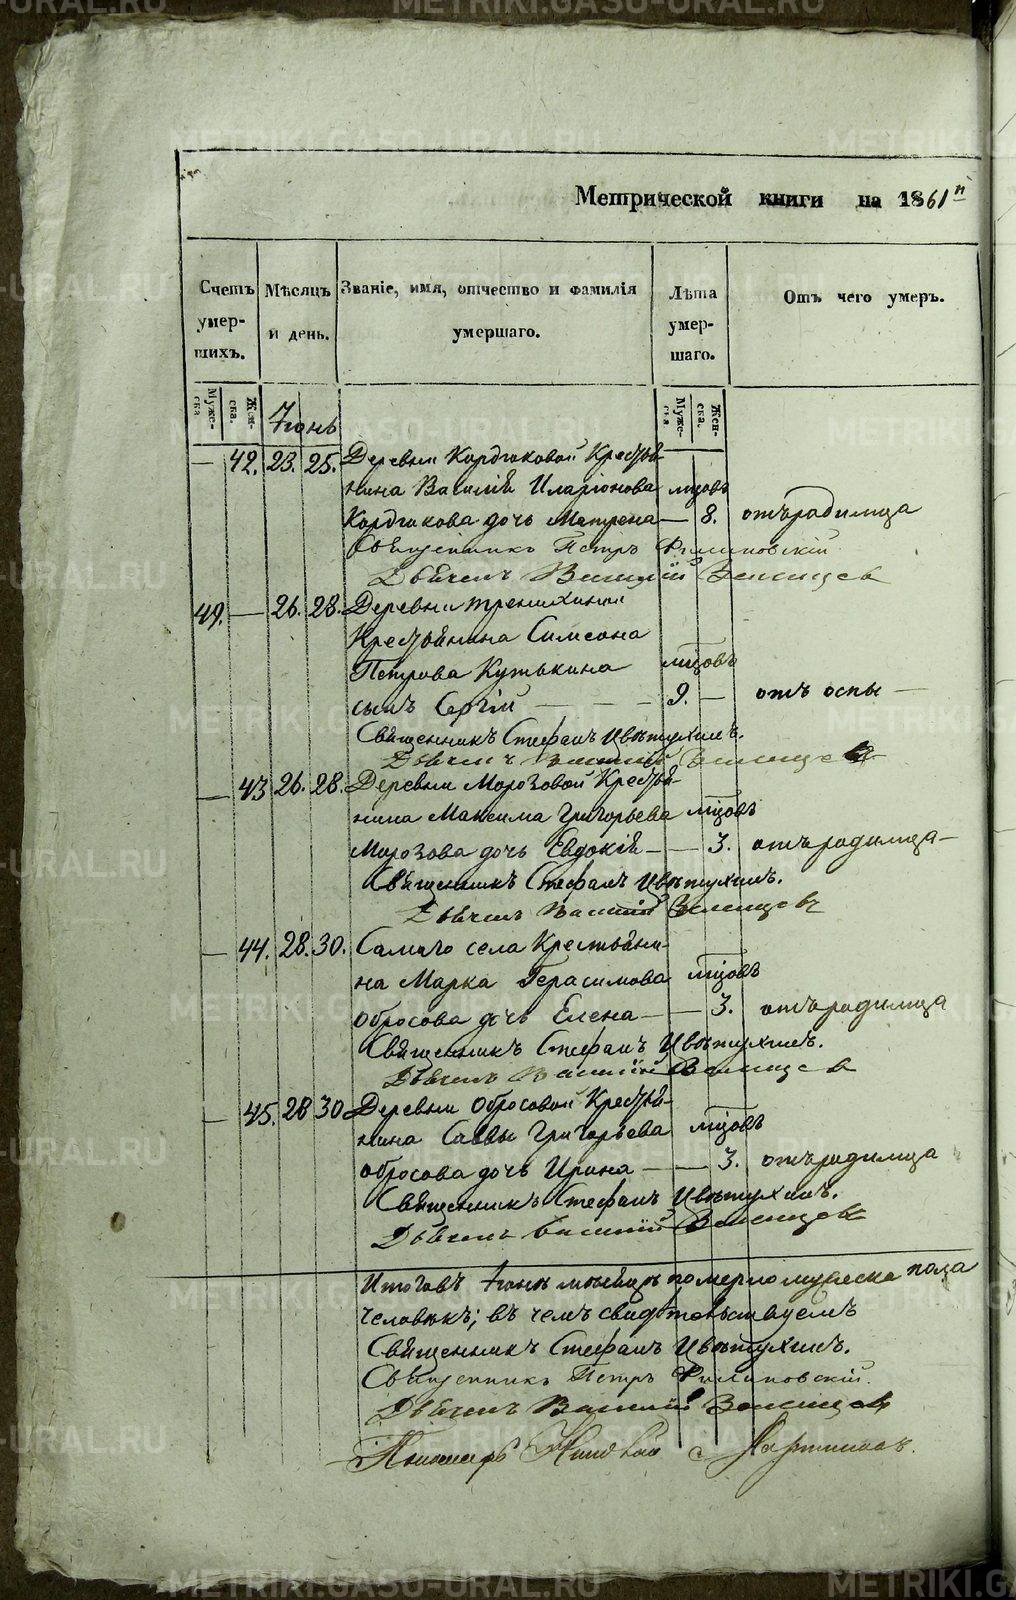 METRIKI.GASO-URAL.RU
Метрической книги на 1861й
Счетъ умер-шихъ.
Мѣсяцъ и день.
Званіе, имя, отчество и фамилія умершаго.
Лѣта умер-шаго.
Отъ чего умеръ.
Муже-ска
Жен-ска.
Іюнь
Муже-ска
Жен-ска.
— 42. 23. 25. Деревни Кордюковой Крестья-
нина Василія Иларіонова мцовъ
Кордюкова дочь Матрена — 8. отъ родимца
Священникъ Петръ Филиповскій
Дьячекъ Василій
49. — 26. 28. Деревни Тренихиной
Крестьянина Симеона
Петрова Кутькина мцовъ
сынъ Сергій — — — 9. — отъ оспы —
Священникъ Стефанъ Цвѣтухинъ.
Дьячекъ Василій
— 43 26. 28. Деревни Морозовой Крестья-
нина Максима Григорьева мцовъ
Морозова дочь Евдокія — — 3. отъ родимца —
Священникъ Стефанъ Цвѣтухинъ.
Дьячекъ Василій
— 44. 28. 30. Самаго села Крестьяни-
на Марка Герасимова мцовъ
Обросова дочь Елена — — 3. отъ родимца
Священникъ Стефанъ Цвѣтухинъ.
Дьячекъ Василій
— 45. 28 30 Деревни Обросовой Крестья-
нина Саввы Григорьева мцовъ
Обросова дочь Ирина — — 3. отъ родимца
Священникъ Стефанъ Цвѣтухинъ.
Дьячекъ Василій
Итогавъ Іюнѣ мѣсяцѣ померло мужеска пола
человѣкъ; въ чемъ свидѣтельствуемъ
Священникъ Стефанъ Цвѣтухинъ.
Священникъ Петръ Филиповскій.
Дьячекъ Василій
Пономарь